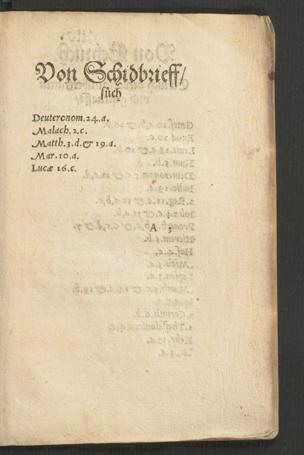 Von Schidbrieff/
such
Deuteronom.24.a.
Malach.2.c.
Matth.5.d.& 19.a.
Mar.10.a.
Lucæ 16.c.
A 5